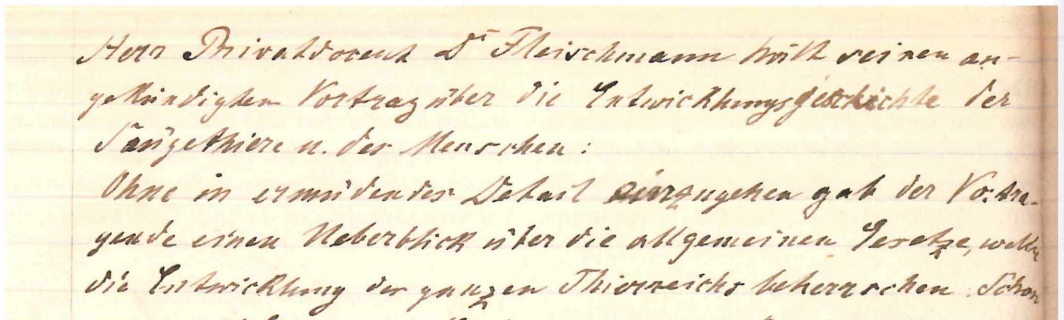 Herr Privatdocent Dr Fleischmann hält seinen an-
gekündigten Vortrag über die Entwicklungsgeschichte der
Säugethiere u. des Menschen:
Ohne in ermüdendes Detail einzugehen gab der Vortra-
gende einen Ueberblick über die allgemeinen Gesetze, welche
die Entwicklung des ganzen Thierreichs beherrschen. Schon